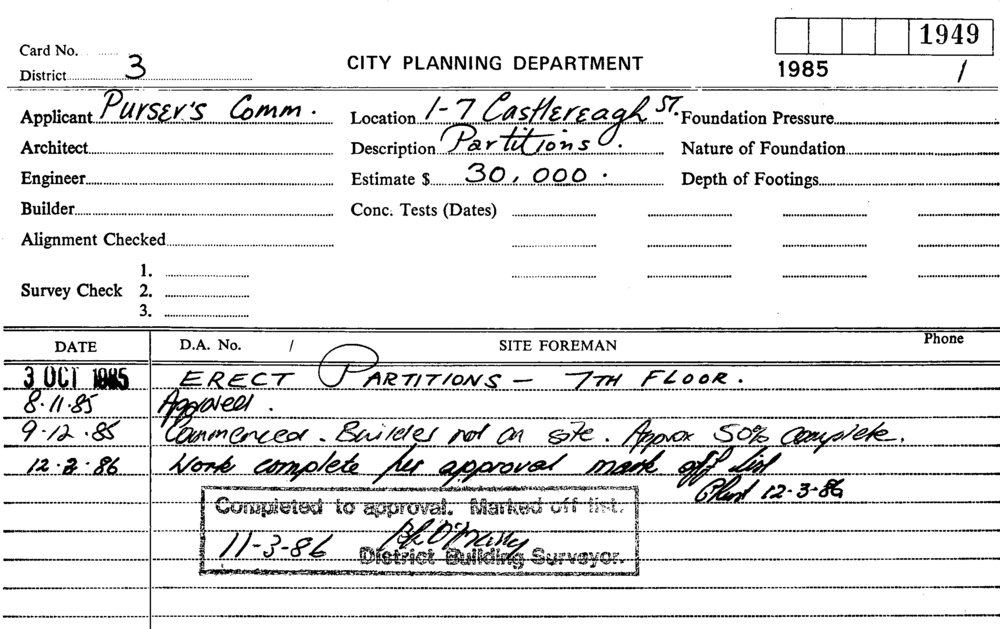 Card No.
1949
District 3
CITY PLANNING DEPARTMENT
1985 /
Applicant Purser's Comm.
Location 1-7 Castlereagh ST.
Foundation Pressure
Architect
Description Partitions.
Nature of Foundation
Engineer
Estimate $ 30,000.
Depth of Footings
Builder
Conc. Tests (Dates)
Alignment Checked
Survey Check 1.
2.
3.
DATE D.A. No. / SITE FOREMAN Phone
3 OCT 1985 ERECT PARTITIONS - 7TH FLOOR.
8.11.85 Approved.
9.12.85 Commenced. Builder not on site. Approx 50% complete.
12.3.86 Work complete per approval mark off list
12.3.86
Completed to approval. Marked off list.
11-3-86
District Building Surveyor.